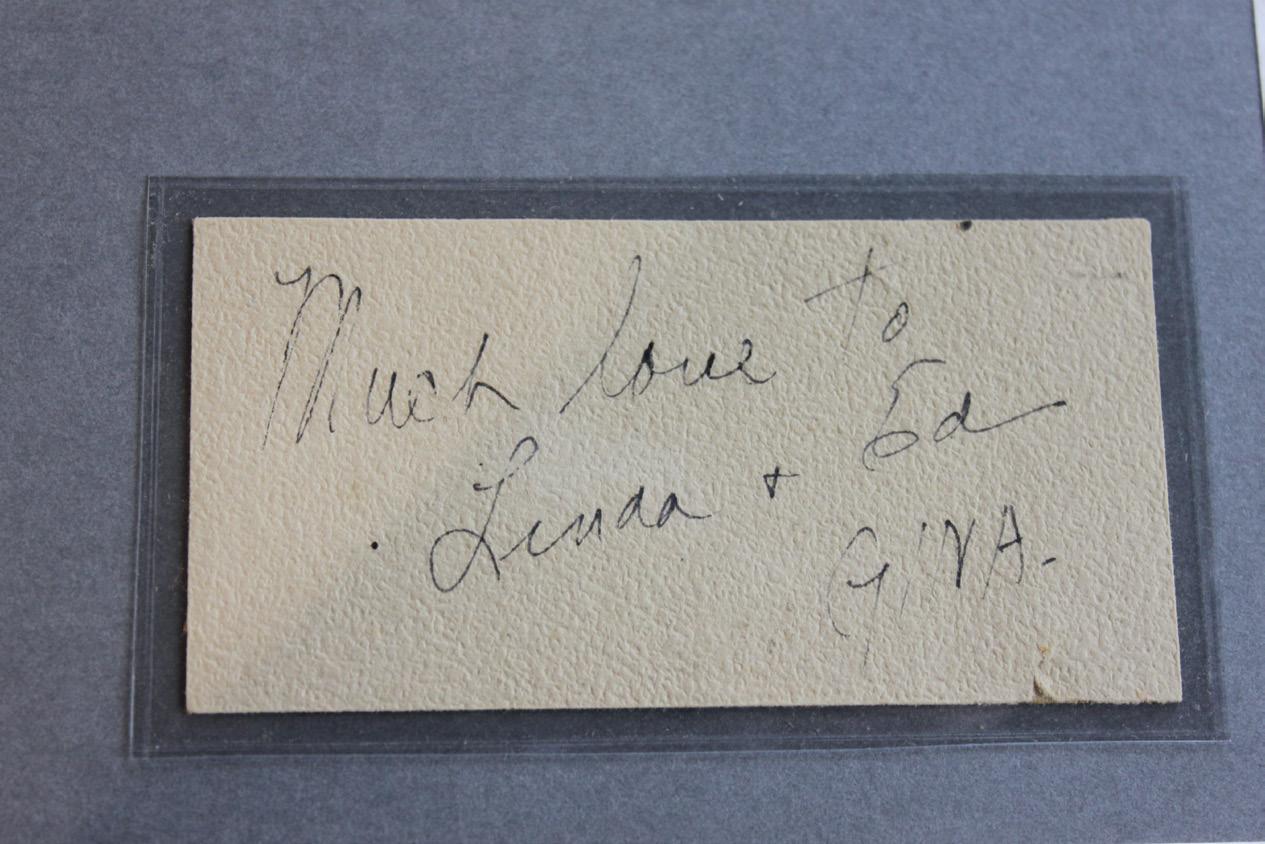 Much love to
Ed
Linda +
GINA.